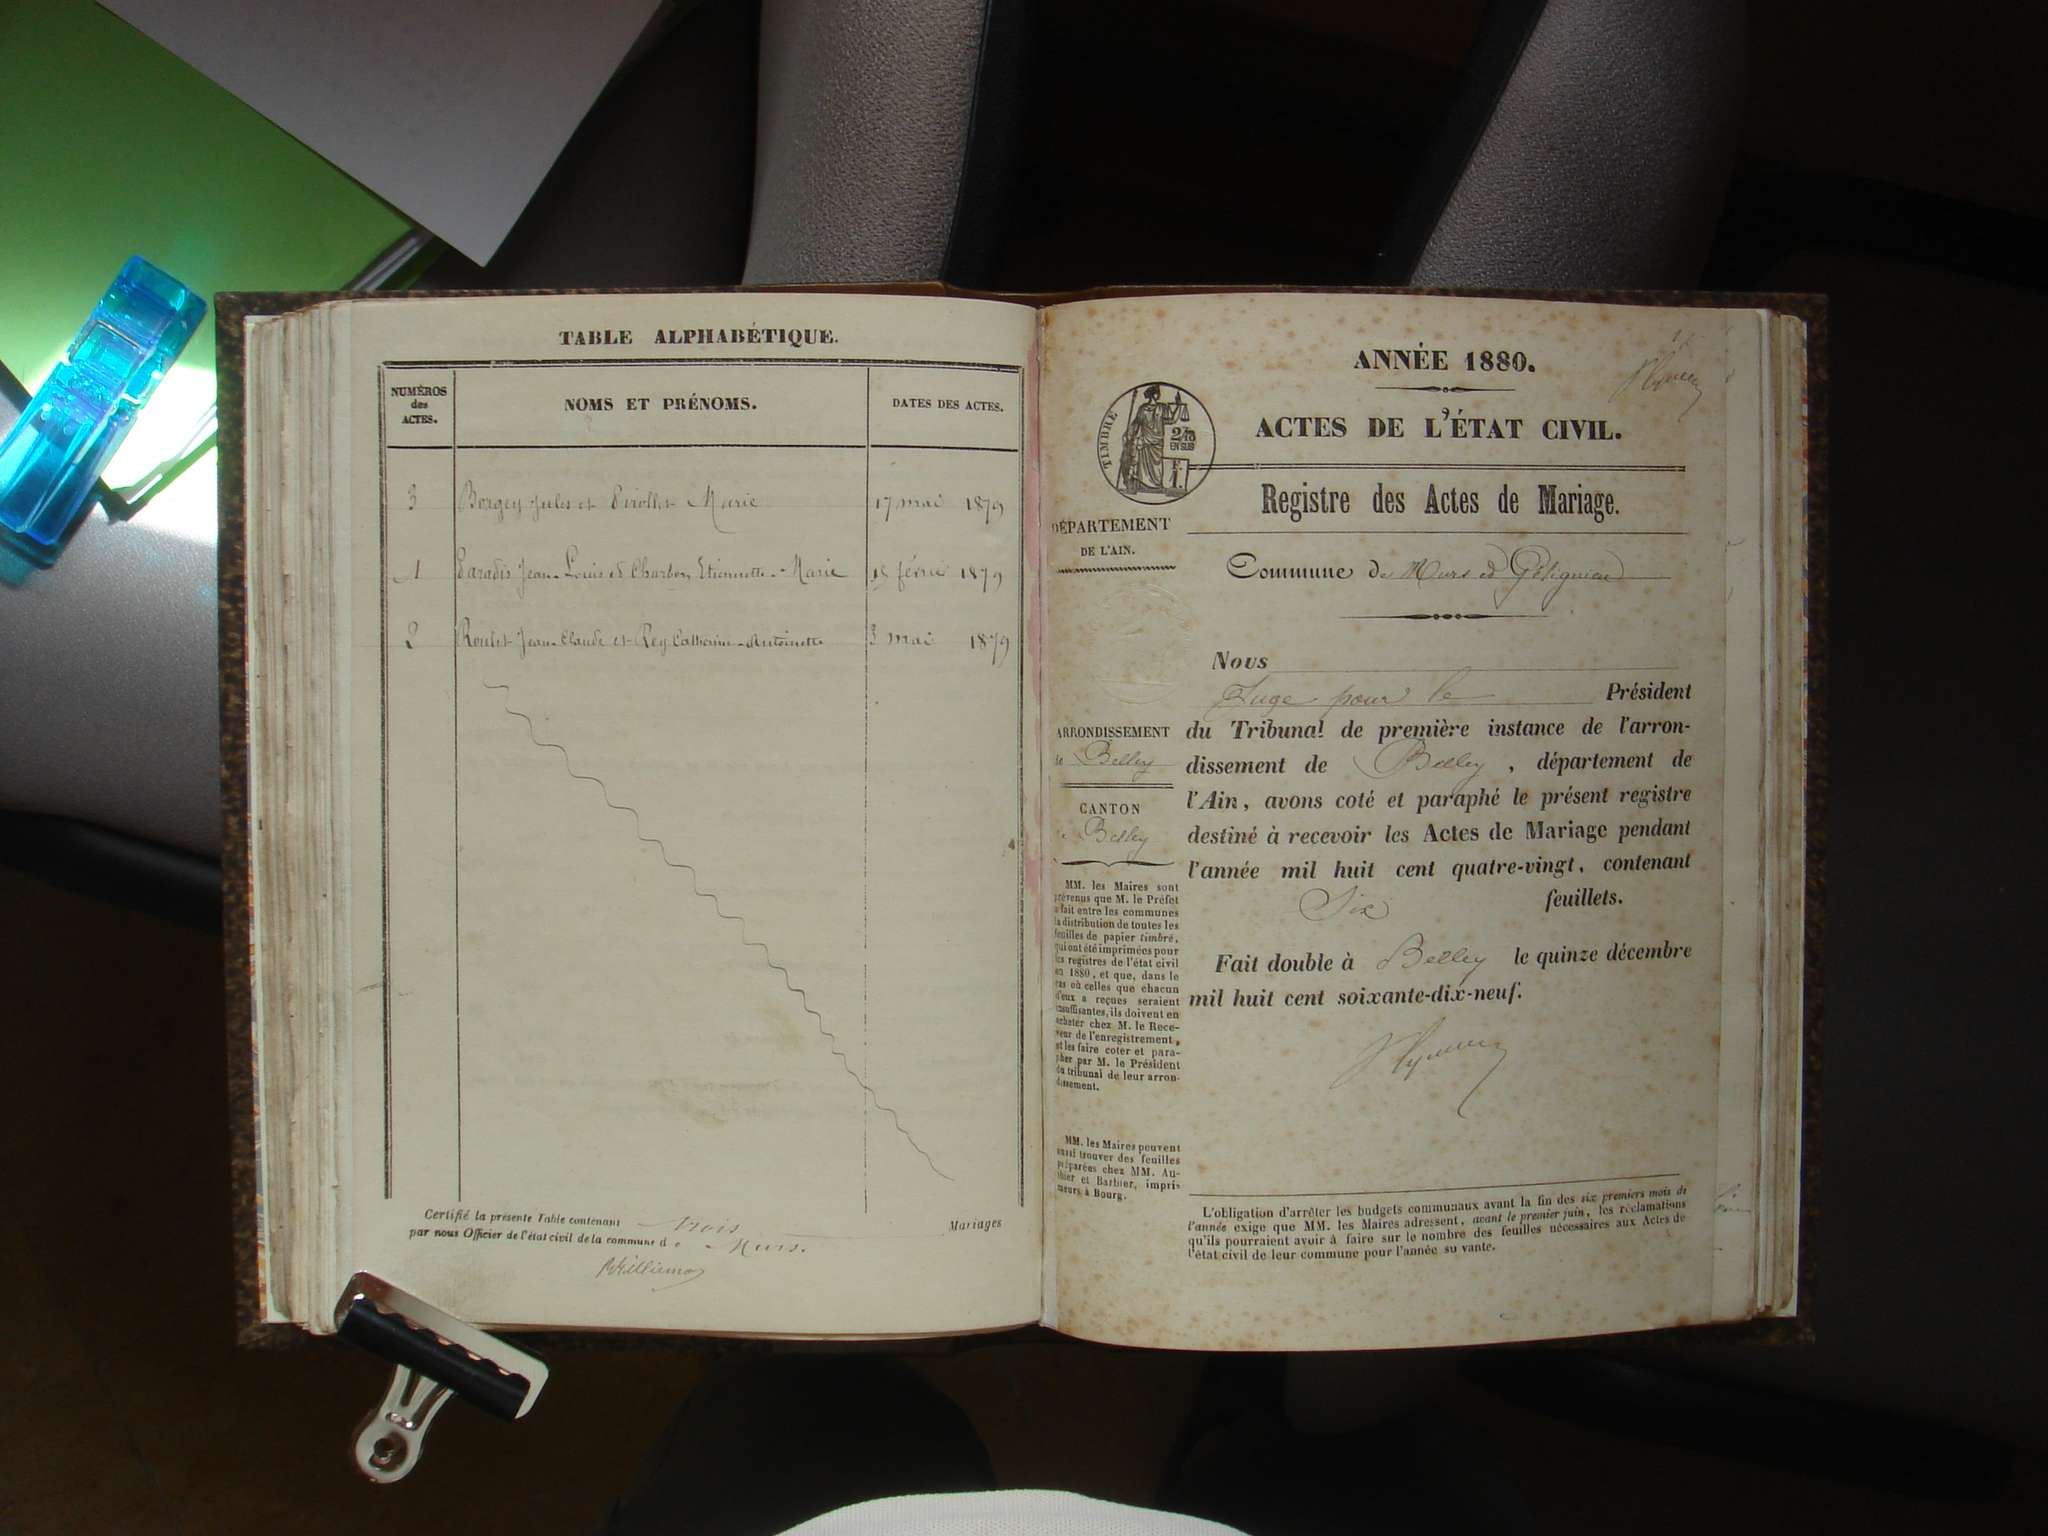 TABLE ALPHABÉTIQUE.
NUMÉROS
des
ACTES.
NOMS ET PRÉNOMS.
DATES DES ACTES.
3 Borgey Jules et Pirollet Marie 17 mai 1879
1 Paradis Jean-Louis et Charbon Etiennette-Marie 15 février 1879
2 Roulet Jean-Claude et Rey Catherine-Antoinette 3 mai 1879
Certifié la présente Table contenant trois Mariages
par nous Officier de l'état civil de la commune de Murs.
ANNÉE 1880.
ACTES DE L'ÉTAT CIVIL.
TIMBRE
EN SUS
Registre des Actes de Mariage.
DÉPARTEMENT
DE L'AIN.
Commune de Murs et Gélignieux
ARRONDISSEMENT
de Belley
CANTON
de Belley
MM. les Maires sont
prévenus que M. le Préfet
a fait entre les communes
la distribution de toutes les
feuilles de papier timbré,
qui ont été imprimées pour
les registres de l'état civil
en 1880, et que, dans le
cas où celles que chacun
d'eux a reçues seraient
insuffisantes, ils doivent en
acheter chez M. le Rece-
veur de l'enregistrement,
et les faire coter et para-
pher par M. le Président
du tribunal de leur arron-
dissement.
MM. les Maires peuvent
aussi trouver des feuilles
préparées chez MM. Au-
thier et Barbier, impri-
meurs à Bourg.
Nous
Juge pour le Président
du Tribunal de première instance de l'arron-
dissement de Belley, département de
l'Ain, avons coté et paraphé le présent registre
destiné à recevoir les Actes de Mariage pendant
l'année mil huit cent quatre-vingt, contenant
Six feuillets.
Fait double à Belley le quinze décembre
mil huit cent soixante-dix-neuf.
L'obligation d'arrêter les budgets communaux avant la fin des six premiers mois de
l'année exige que MM. les Maires adressent, avant le premier juin, les réclamations
qu'ils pourraient avoir à faire sur le nombre des feuilles nécessaires aux Actes de
l'état civil de leur commune pour l'année su vante.